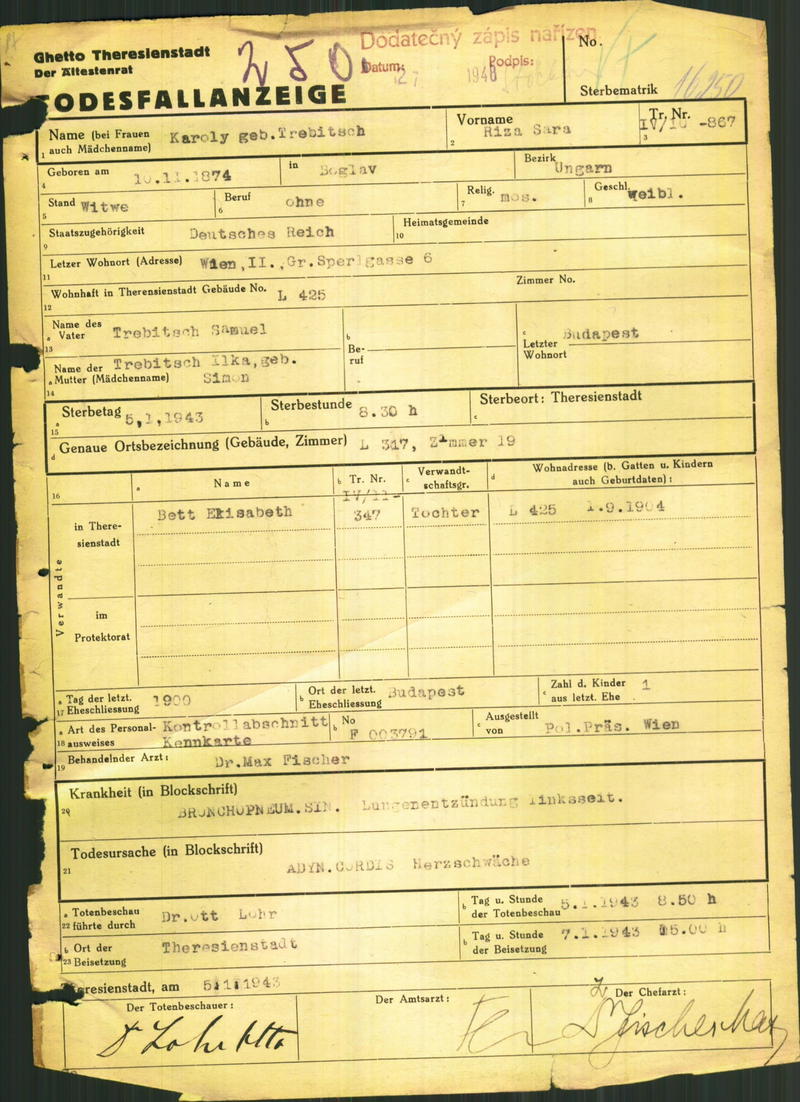 Ghetto Theresienstadt
Der Ältestenrat
TODESFALLANZEIGE
250
Dodatečný zápis nařízen
Datum: Podpis:
No.
Sterbematrik 16250
Name (bei Frauen auch Mädchenname) Karoly geb.Trebitsch
1
Vorname Riza Sara
2
Tr. Nr. IV/10 -867
3
Geboren am 10.11.1874
4
in Boglav
Bezirk Ungarn
Stand Witwe
5
Beruf ohne
6
Relig. mos.
7
Geschl. weibl.
8
Staatszugehörigkeit Deutsches Reich
9
Heimatsgemeinde
10
Letzer Wohnort (Adresse) Wien,II.,Gr.Sperlgasse 6
11
Wohnhaft in Therensienstadt Gebäude No. L 425
12
Zimmer No.
Name des Vater Trebitsch Samuel
a
13
b Be-
ruf
c Letzter Wohnort Budapest
Name der Mutter (Mädchenname) Trebitsch Ilka,geb.
Simon
a
14
Sterbetag 5,1,1943
a
15
Sterbestunde 8.30 h
b
Sterbeort: Theresienstadt
c
Genaue Ortsbezeichnung (Gebäude, Zimmer) L 317, Zimmer 19
d
16
a Name
b Tr. Nr.
c Verwandt-
schaftsgr.
d Wohnadresse (b. Gatten u. Kindern
auch Geburtdaten) :
Verwandte
in There-
sienstadt
Bett Elisabeth 347 Tochter L 425 .9.1904
im
Protektorat
a Tag der letzt.
17 Eheschliessung 1900
b Ort der letzt.
Eheschliessung Budapest
c Zahl d. Kinder
aus letzt. Ehe 1
a Art des Personal-
18 ausweises Kontrollabschnitt
Kennkarte
b No
F 003791
c Ausgestellt
von Pol.Präs. Wien
19 Behandelnder Arzt: Dr.Max Fischer
Krankheit (in Blockschrift)
20
BRONCHOPNEUM.SIN. Lungenentzündung linksseit.
Todesursache (in Blockschrift)
21
ADYN.CORDIS Herzschwäche
a Totenbeschau
22 führte durch Dr.ott Lohr
b Tag u. Stunde
der Totenbeschau 5.1.1943 8.50 h
b Ort der
23 Beisetzung Theresienstadt
b Tag u. Stunde
der Beisetzung 7.1.1943 15.00 h
Theresienstadt, am 5.1.1943
Der Totenbeschauer :
Der Amtsarzt :
Der Chefarzt :
Dr Lohr Otto
Dr Fischer Max